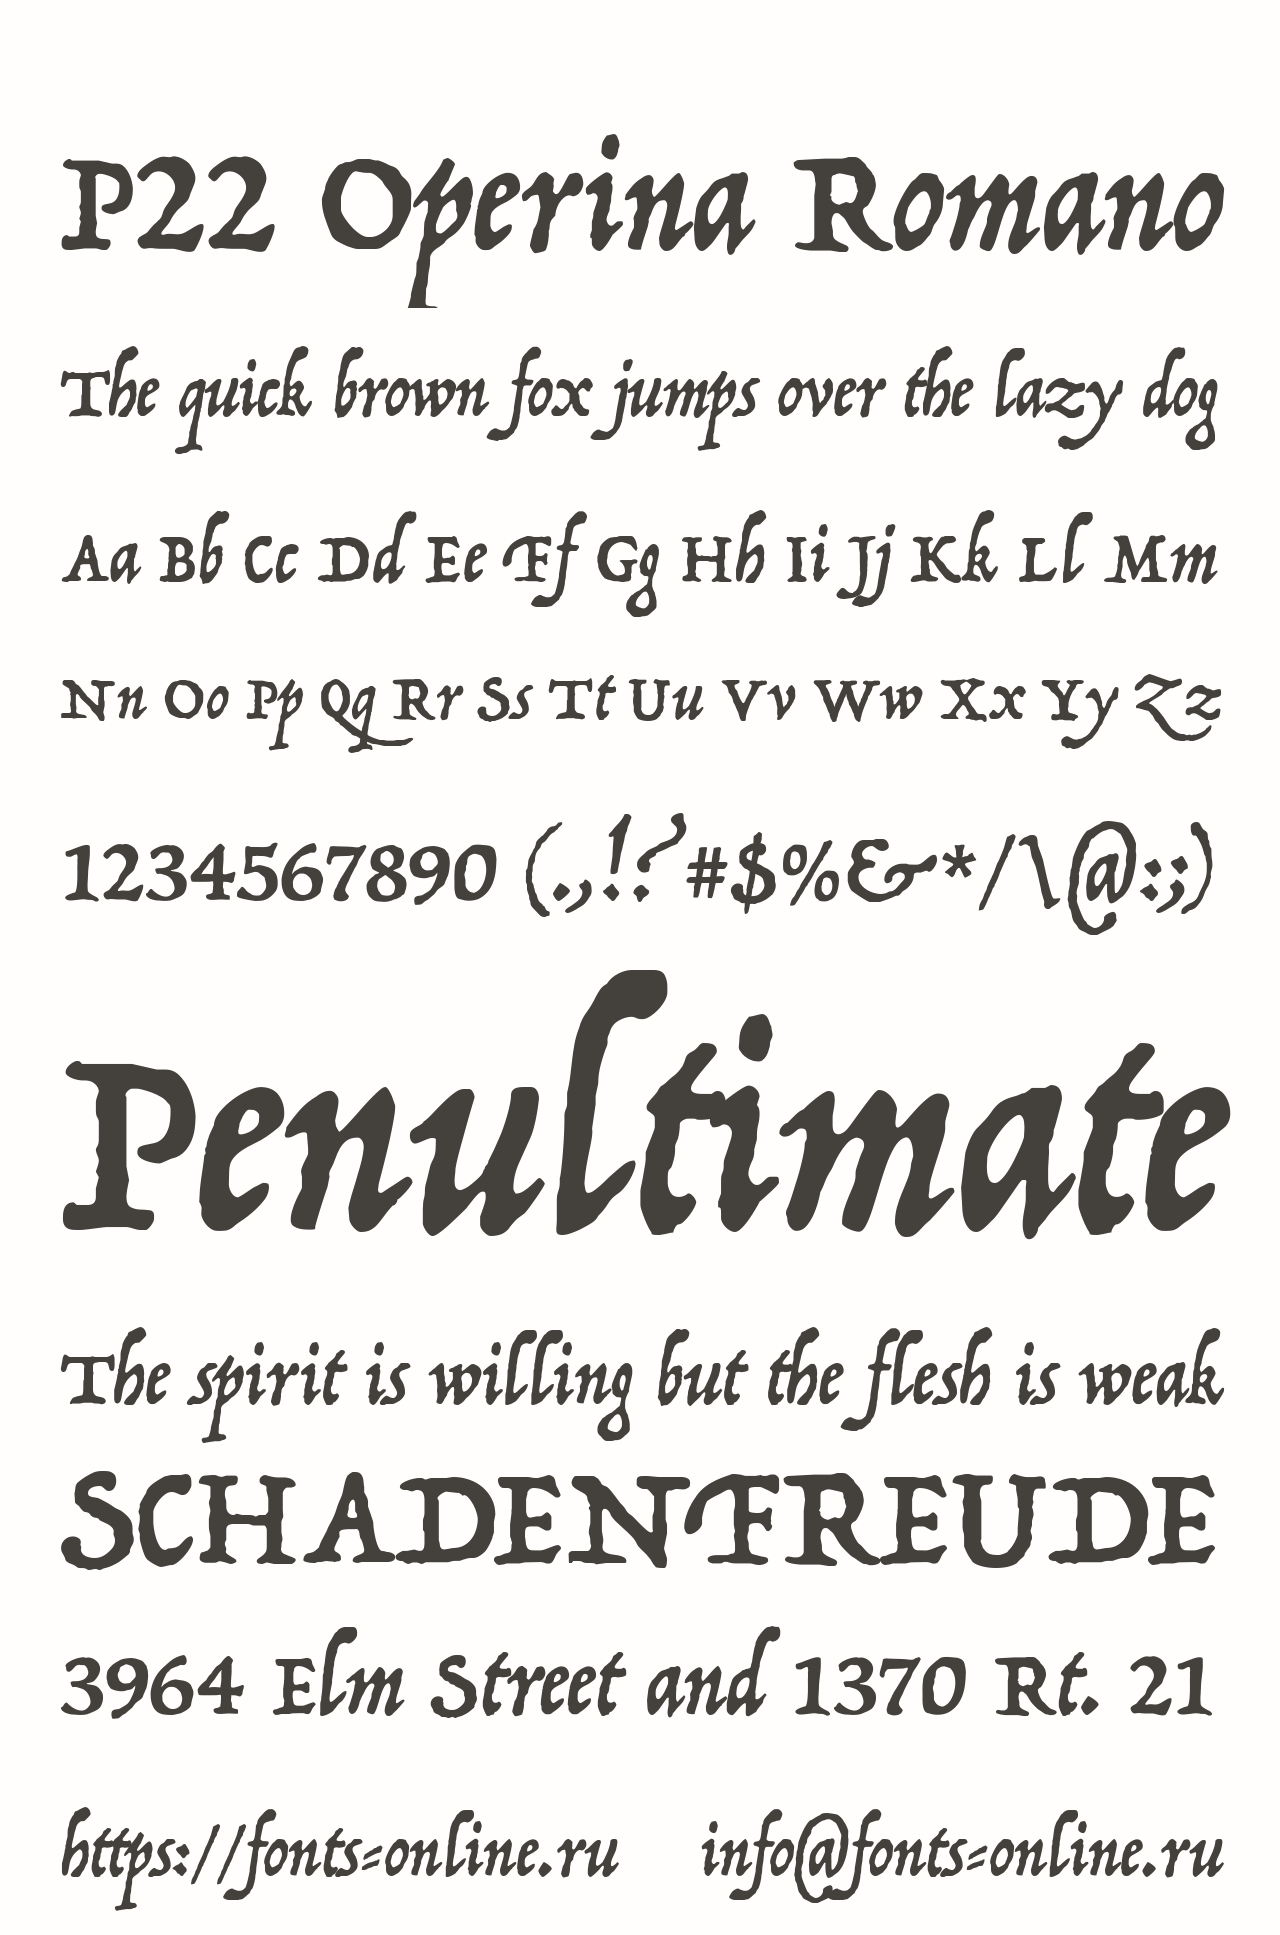 P22 Operina Romano
The quick brown fox jumps over the lazy dog
Aa Bb Cc Dd Ee Ff Gg Hh Ii Jj Kk Ll Mm
Nn Oo Pp Qq Rr Ss Tt Uu Vv Ww Xx Yy Zz
1234567890 (.,!?#$%&*/\@:;)
Penultimate
The spirit is willing but the flesh is weak
SCHADENFREUDE
3964 Elm Street and 1370 Rt. 21
https://fonts-online.ru info@fonts-online.ru